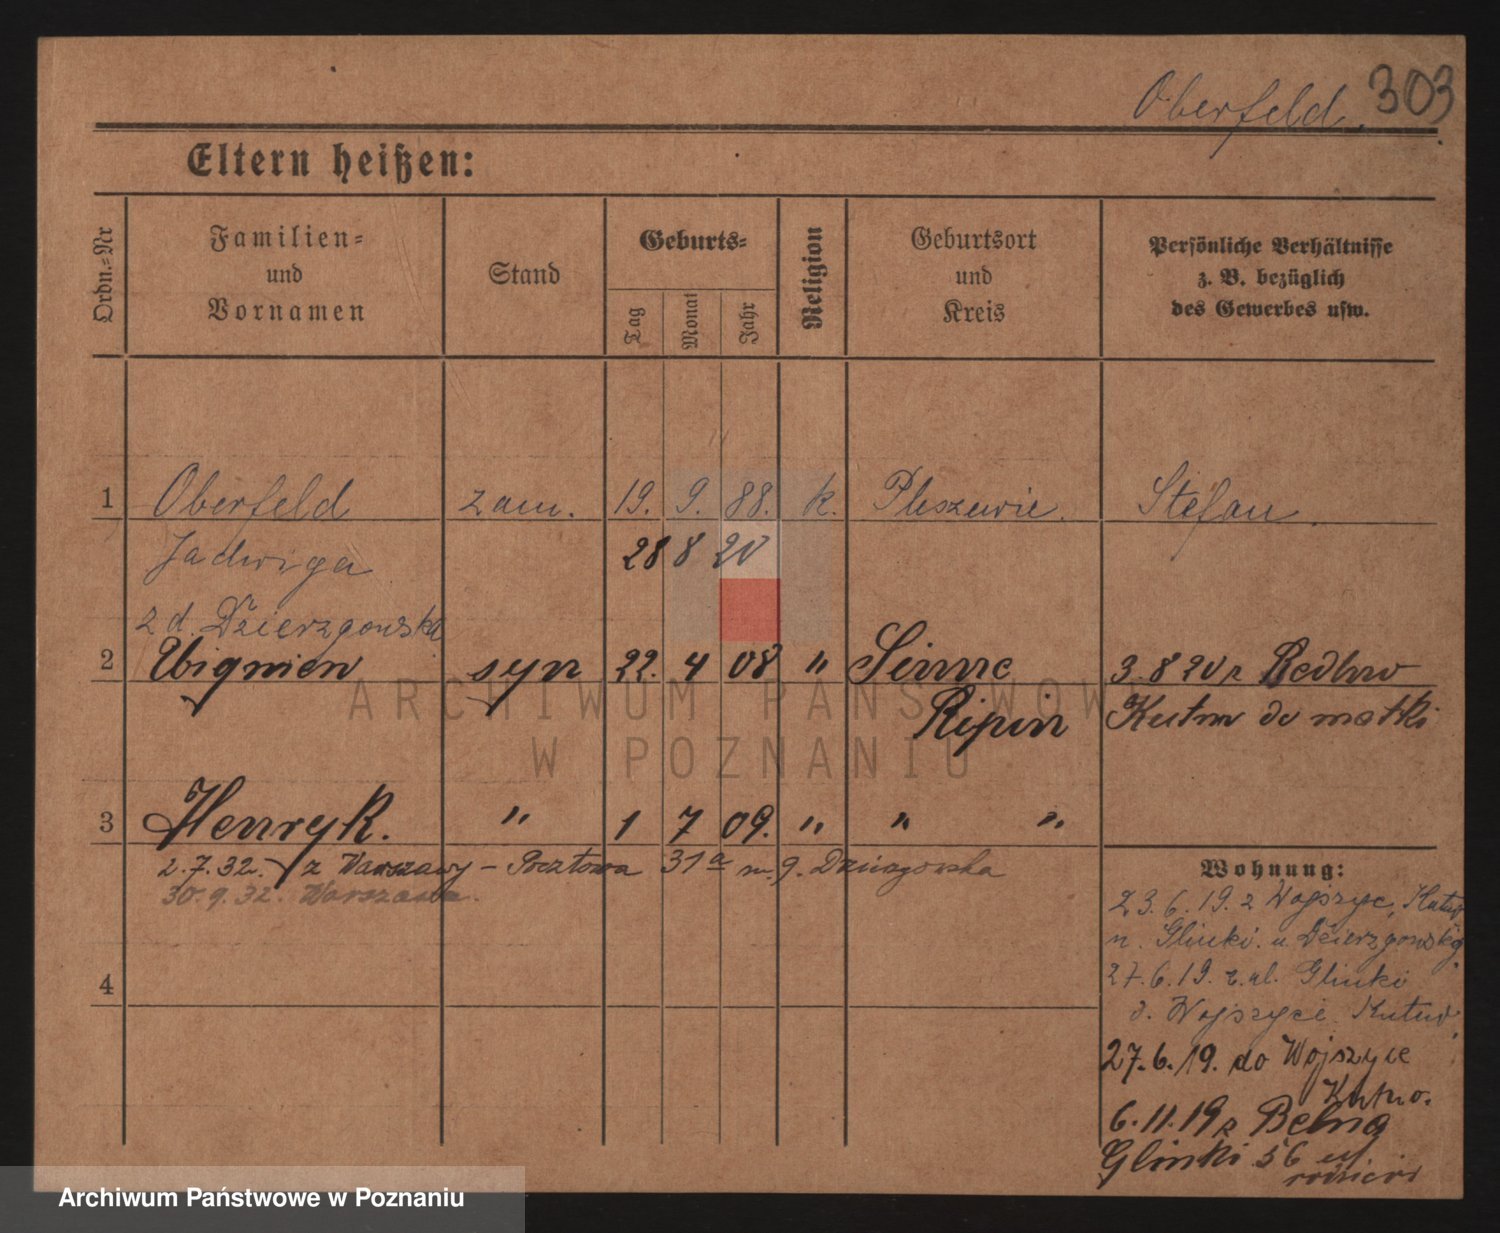 Oberfeld. 303
Eltern heißen:
Ordn.-Nr
Familien-
und
Vornamen
Stand
Geburts-
Tag
Monat
Jahr
Religion
Geburtsort
und
Kreis
Persönliche Verhältnisse
z. B. bezüglich
des Gewerbes usw.
1 Oberfeld zam. 19. 9. 88. k. Pleszewie. Stefan.
Jadwiga 28 8 20
z d. Dzierzgowska
2 Zbigniew syn 22. 4 08 " 3.8 20 z
Ripin Kutno do matki
3 Henryk. " 1 7 09. " " "
2.7.32. z Warszawy – Pocztowa 31a m. 9. Dzierzgowska
30.9.32. Warszawa.
Wohnung:
23.6.19. z Wojszyc, Kutno
n. Glinki. u Dzierzgowskg.
27.6.19. Glinki
d. Wojszyce. Kutno.
27.6.19. do Wojszyce
Kutno.
6.11.19 z
Glinki 56
4
ARCHIWUM PAŃSTWOW
W POZNANIU
Archiwum Państwowe w Poznaniu